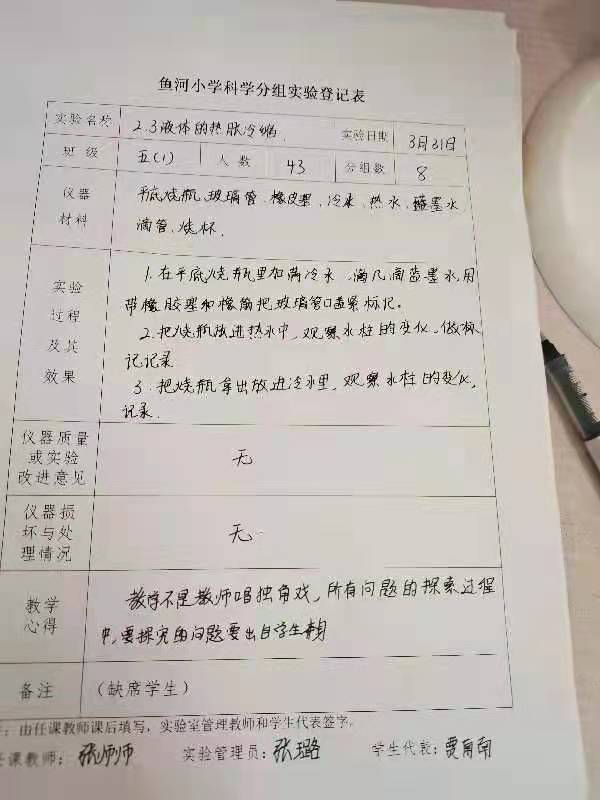 鱼河小学科学分组实验登记表
实验名称 2.3液体的热胀冷缩 实验日期 3月31日
班级 五(1) 人数 43 分组数 8
仪器 平底烧瓶、玻璃管、橡皮塞、冷水、热水、蓝墨水
材料 滴管、烧杯.
实验 1.在平底烧瓶里加满冷水,滴几滴蓝墨水,用
过程 带橡胶塞和橡筋把玻璃管口盖紧标记.
及其 2.把烧瓶放进热水中,观察水柱的变化,做标
效果 记记录
3.把烧瓶拿出放进冷水里,观察水柱的变化,
记录.
仪器质量
或实验 无
改进意见
仪器损
坏与处 无
理情况
教学 教学不是教师唱独角戏,所有问题的探索过程
心得 中,要探究的问题要出自学生
备注 (缺席学生)
:由任课教师课后填写,实验室管理教师和学生代表签字。
任课教师: 张师师 实验管理员: 张璐 学生代表: 贾